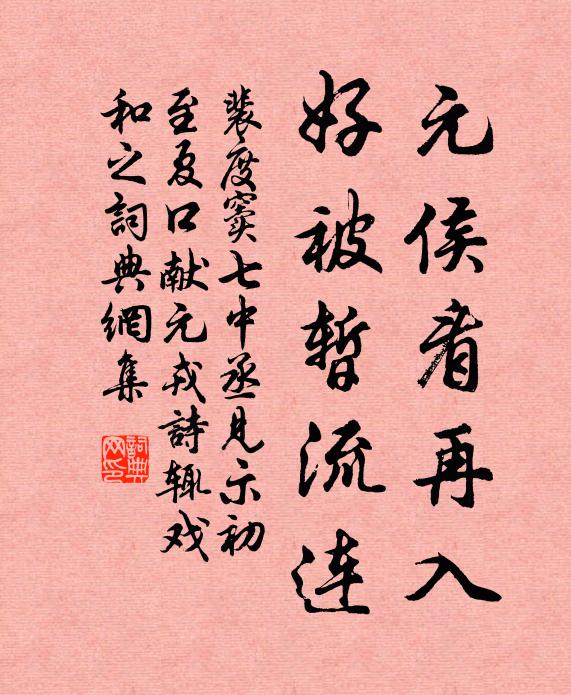 元侯看再入
好被暂流连
裴度窦七中丞见示初
至夏口献元戎詩辄戏
和之詞典網集
詞典网印